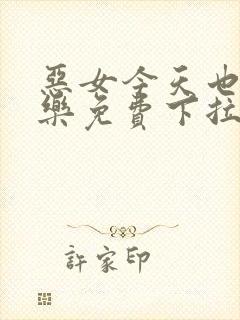 惡女今天也
樂免費下拉
許家印